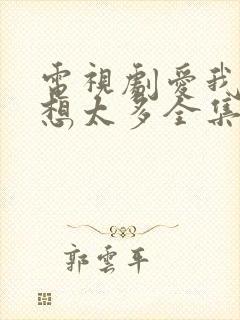 電視劇愛我
想太多全集
郭雲平